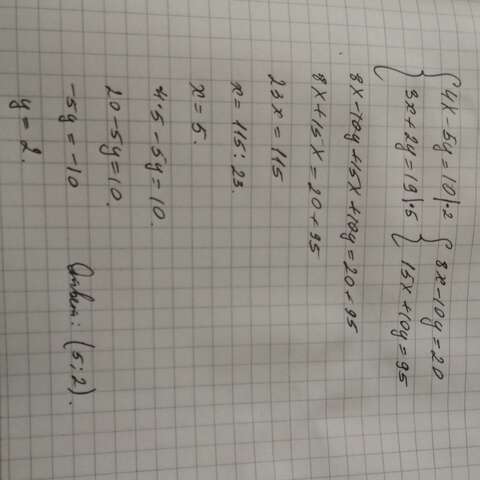 {4x - 5y = 10 |·2 {8x - 10y = 20
{3x + 2y = 19 |·5 {15x + 10y = 95
8x - 10y + 15x + 10y = 20 + 95
8x + 15x = 20 + 95
23x = 115
x = 115 : 23.
x = 5.
4·5 - 5y = 10.
20 - 5y = 10.
-5y = -10
y = 2.
Ответ: (5; 2).